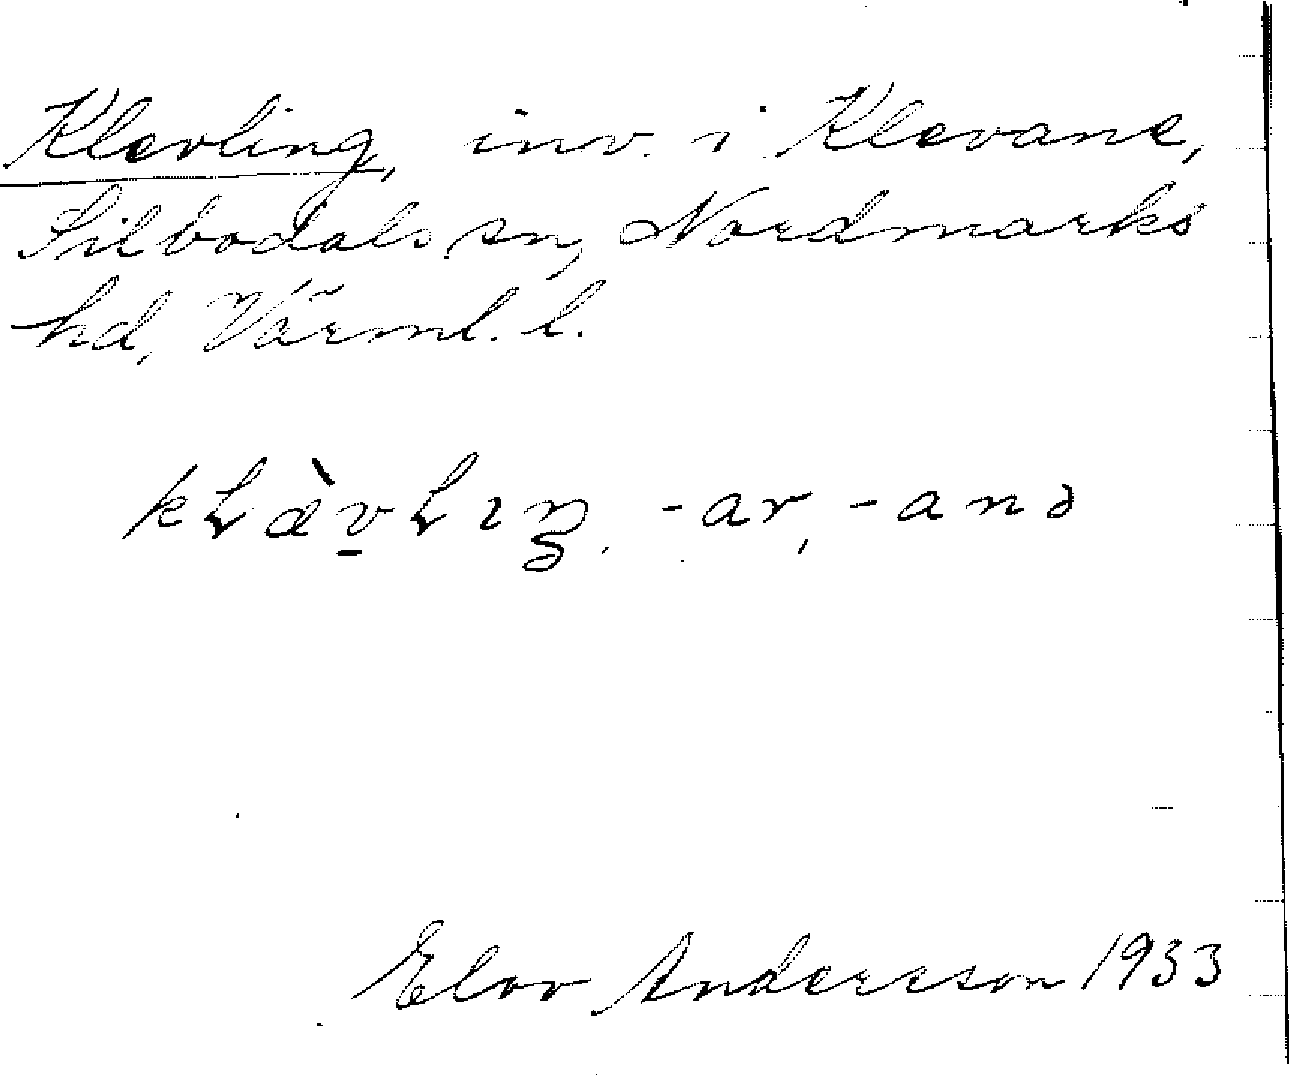 Klevling, inv. i Klevane,
Silbodals sn, Nordmarks
hd, Värml. l.
kⱡæ̀v̱ⱡıŋ, -ar, -anə
Elov Andersson 1933